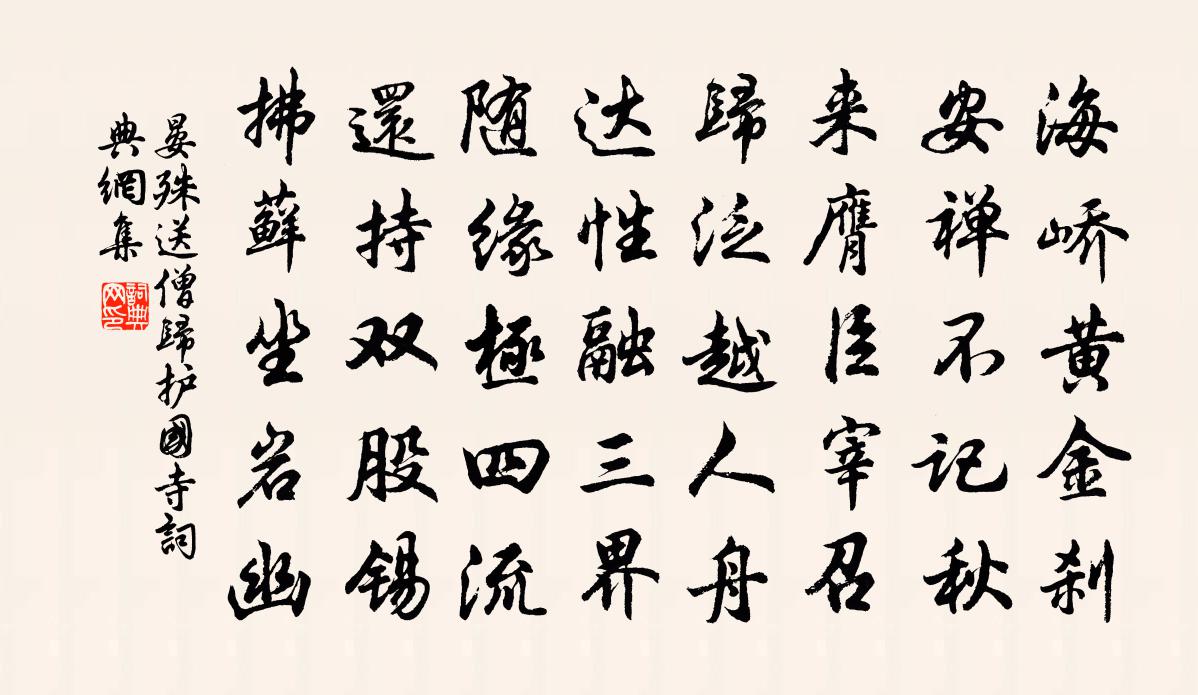 海峤黄金刹
安禅不记秋
来膺臣宰召
歸泛越人舟
达性融三界
随缘極四流
還持双股锡
拂蘚坐岩幽
晏殊送僧歸护國寺詞
典網集
詞典
网印